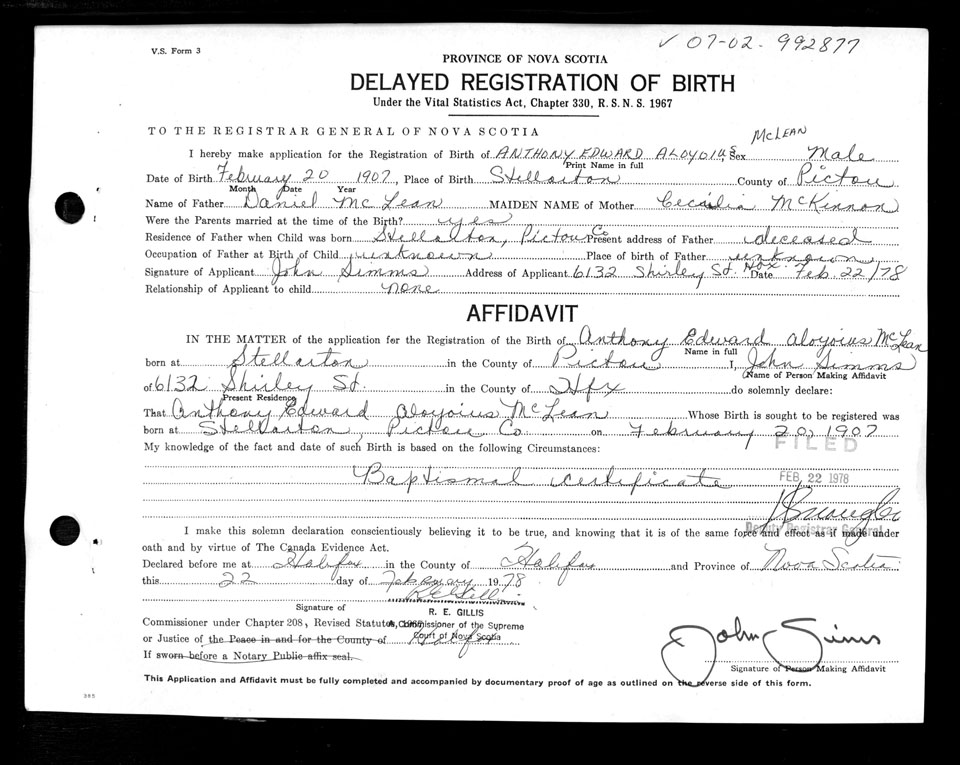 V.S. Form 3
✓ 07-02- 992877
PROVINCE OF NOVA SCOTIA
DELAYED REGISTRATION OF BIRTH
Under the Vital Statistics Act, Chapter 330, R. S. N. S. 1967
TO THE REGISTRAR GENERAL OF NOVA SCOTIA
McLEAN
I hereby make application for the Registration of Birth of ANTHONY EDWARD ALOYOIUS Sex Male
Print Name in full
Date of Birth February 20 1907, Place of Birth Stellarton County of Pictou
Month Date Year
Name of Father Daniel McLean MAIDEN NAME of Mother Cecailia McKinnon
Were the Parents married at the time of the Birth? yes
Residence of Father when Child was born Stellarton, Pictou Co Present address of Father deceased
Occupation of Father at Birth of Child unknown Place of birth of Father unknown
Signature of Applicant John Simms Address of Applicant 6132 Shirley St. Hfx. Date Feb. 22/78
Relationship of Applicant to child none
AFFIDAVIT
IN THE MATTER of the application for the Registration of the Birth of Anthony Edward Aloyoius McLean
Name in full
born at Stellarton in the County of Pictou I, John Simms
Name of Person Making Affidavit
of 6132 Shirley St. in the County of Hfx do solemnly declare:
Present Residence
That Anthony Edward Aloyoius McLean Whose Birth is sought to be registered was
born at Stellarton, Pictou Co on February 20, 1907
FILED
My knowledge of the fact and date of such Birth is based on the following Circumstances:
Baptismal certificate
FEB 22 1978
Deputy Registrar General
I make this solemn declaration conscientiously believing it to be true, and knowing that it is of the same force and effect as if made under
oath and by virtue of The Canada Evidence Act.
Declared before me at Halifax in the County of Halifax and Province of Nova Scotia
this 22 day of February 1978
Signature of
R. E. GILLIS
Commissioner under Chapter 208, Revised Statutes, A Commissioner of the Supreme
or Justice of the Peace in and for the County of Court of Nova Scotia
If sworn before a Notary Public affix seal.
John Simms
Signature of Person Making Affidavit
This Application and Affidavit must be fully completed and accompanied by documentary proof of age as outlined on the reverse side of this form.